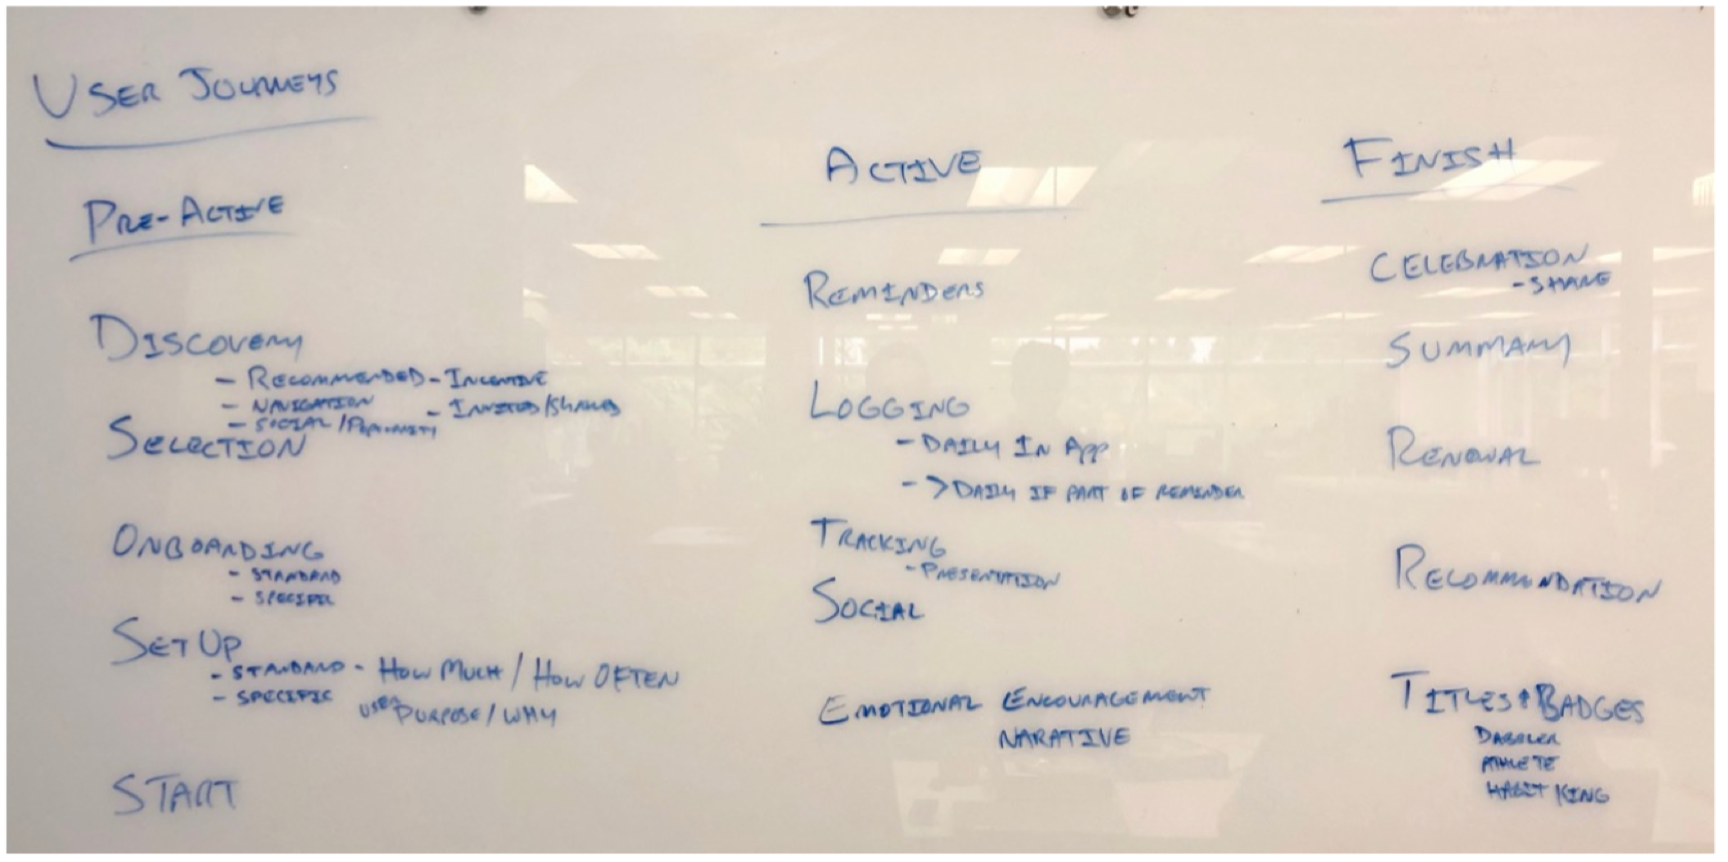 USER JOURNEYS
PRE-ACTIVE
DISCOVERY
- RECOMMENDED - INCENTIVE
- NAVIGATION - INVITED/SHARED
- SOCIAL/
SELECTION
ONBOARDING
- STANDARD
- SPECIFIC
SET UP
- STANDARD - HOW MUCH / HOW OFTEN
- SPECIFIC USER PURPOSE/WHY
START
ACTIVE
REMINDERS
LOGGING
- DAILY IN APP
- > DAILY IF PART OF REMINDER
TRACKING
- PRESENTATION
SOCIAL
EMOTIONAL ENCOURAGEMENT
NARATIVE
FINISH
CELEBRATION
- SHARE
SUMMARY
RENEWAL
RECOMMONDATION
TITLES + BADGES
DABBLER
ATHLETE
HABIT KING